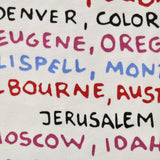 DENVER, COLOR
EUGENE, OREG
LISPELL, MON
LBOURNE, AUST
JERUSALEM
MOSCOW, IDAH